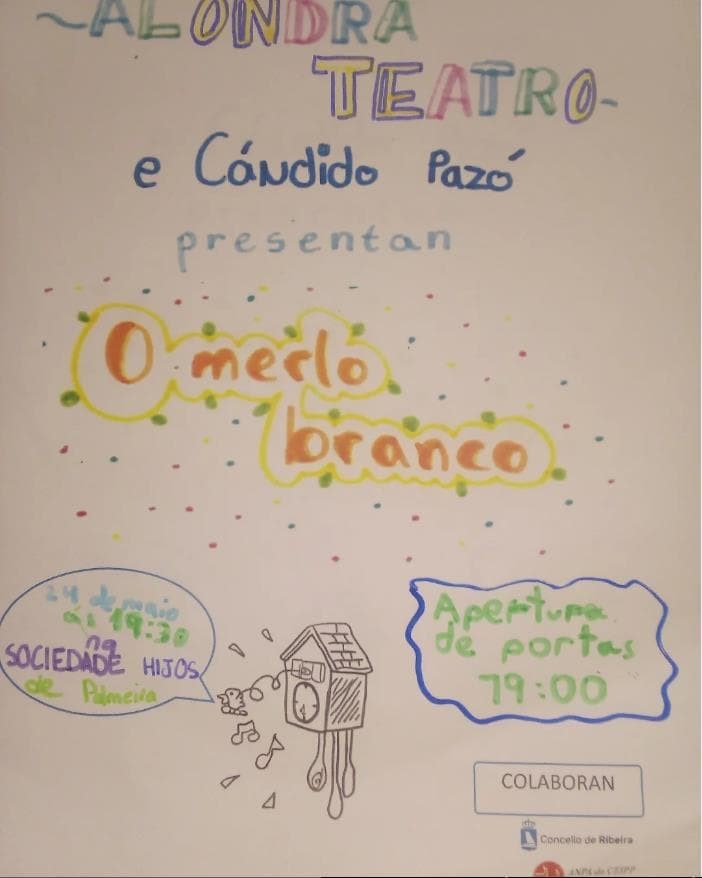 ~ALONDRA
TEATRO~
e Cándido Pazó
presentan
O merlo
branco
24 de maio
ás 19:30
na
SOCIEDADE HIJOS
de Palmeira
Apertura
de portas
19:00
COLABORAN
Concello de Ribeira
ANPA do CEIPP